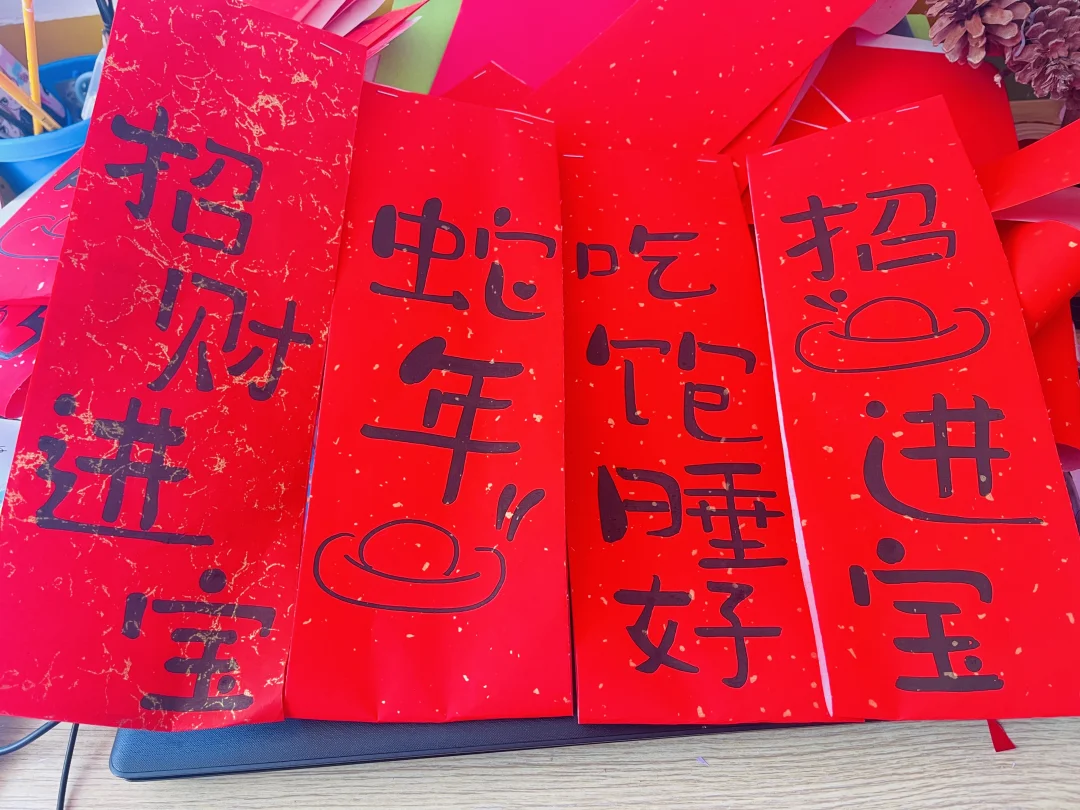 招财进宝
蛇年
吃饱睡好
招进宝